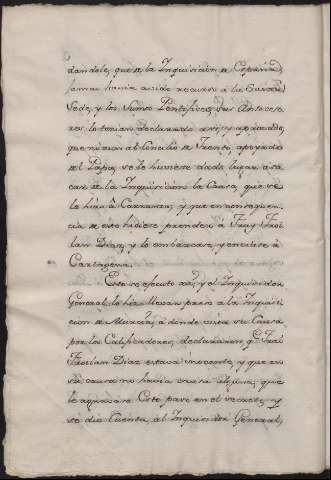 dandole, que de la Inquisicion de España,
jamas havia avido recurso à la Santa
Sede, y los Sumos Pontifices, sus Anteceso
res lo tenian declarado assi, y aprobado,
que ni aun al Concilio de Trento, apoyado
del Papa, se le huviese dado lugar, à sa
car de la Inquisicion la Causa, que se
le hizo à Carranza; y que en consequen
cia de esto hiciese prender, à Fray Froi
lan Diaz, y lo embiase, à
Cartagena.
Estuvo efecto, y el Inquisidor
General, lo hizo llevar preso à la Inquisi
cion de Murcia, à donde vista su Causa
por los Calificadores, declararon, q.e Frai
Froilan Diaz estava inocente, y que en
su causa no havia cosa alguna, que
le agravase. Esto paso en el secreto, y
se dio Cuenta, al Inquisidor General,